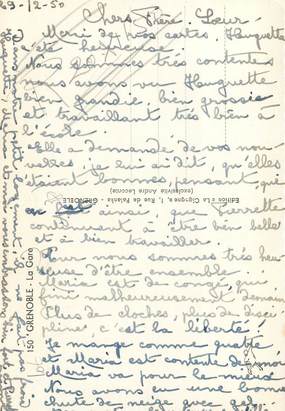 29-12-50
Chers Frère. Soeur.
Merci de vos cartes, Huguette
été heureuse.
Nous sommes très contents
nous avons vu Huguette
bien grandie, bien grossie
et travaillant très bien à
l'école.
Elle a demandé de vos nou-
velles, je lui ai dit, qu'elles
étaient bonnes, pensant que
c'est ainsi, que Pierrette
continuent à être bien belle
et à bien travailler.
Pour nous sommes très heu-
reuse d'être ensemble.
Maria est de congé qui
finit malheureusement demain
Plus de cloches, plus de disci-
pline, c'est la liberté!
Je mange comme quatre
et Maria est contente de moi
Maria va pour le mieux
Nous avons eu une bonne
chute de neige avec gel.
Dans notre petit logement il ne fait pas froid
Huguette, Maria et moi vous embrassons
150 GRENOBLE - La Gare
Editions "La Cigogne", 1, Rue de Palanka - GRENOBLE
(exclusivité André Leconte)